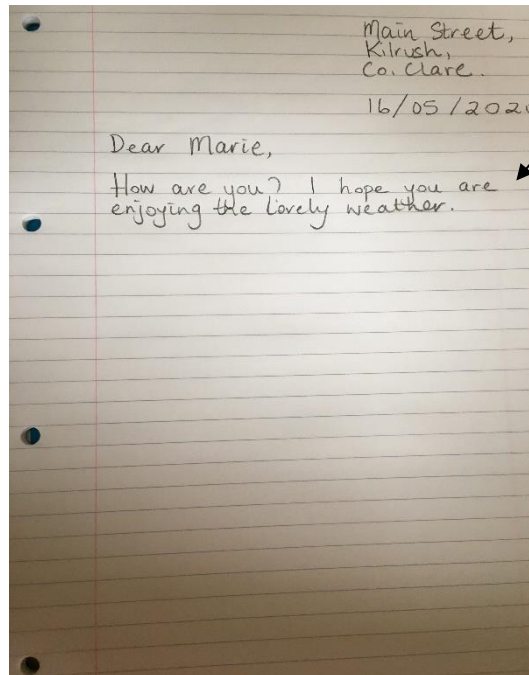 Main Street,
Kilrush,
Co. Clare.
16/05/202
Dear Marie,
How are you? I hope you are
enjoying the lovely weather.